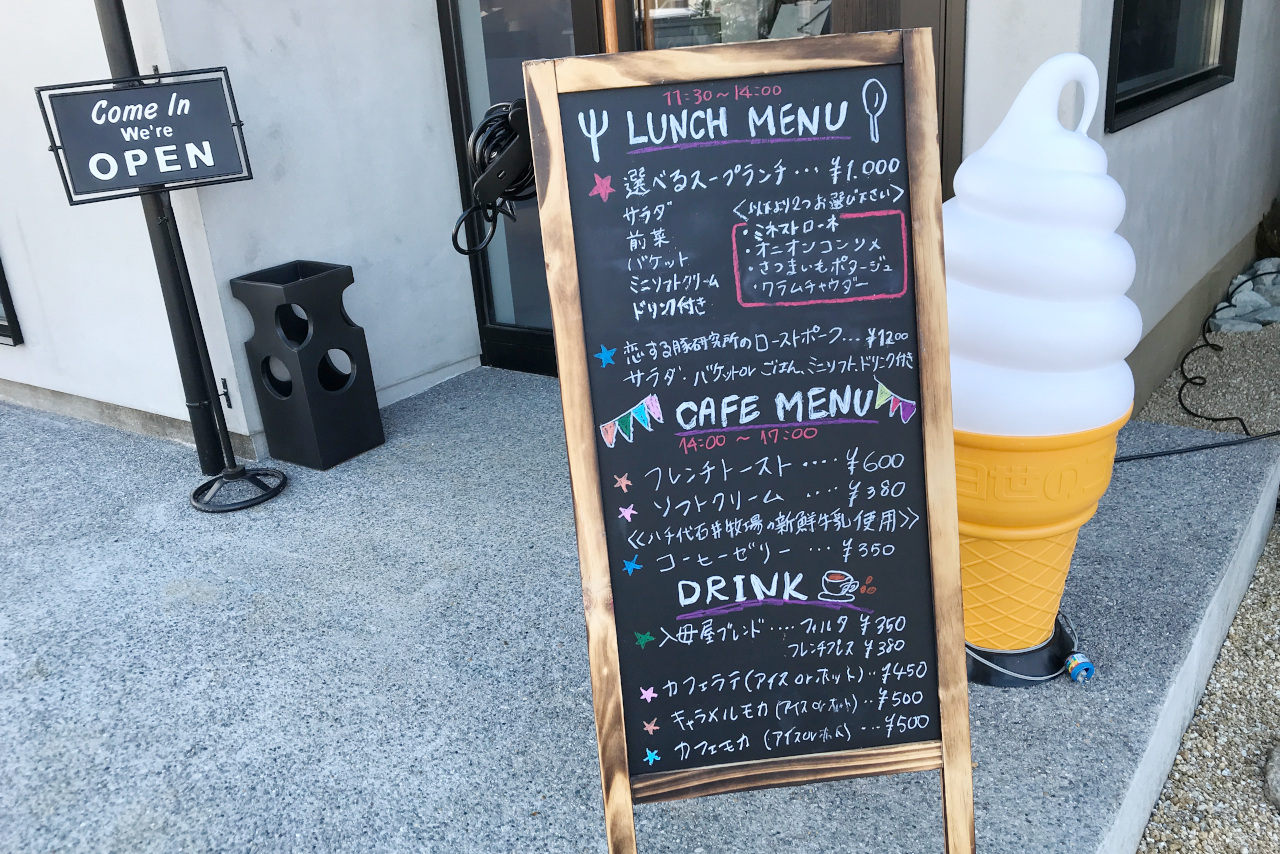 Come In
We're
OPEN
11:30～14:00
LUNCH MENU
選べるスープランチ… ¥1.000
サラダ
前菜
バケット
ミニソフトクリーム
ドリンク付き
<以下より2つお選び下さい>
・ミネストローネ
・オニオンコンソメ
・さつまいもポタージュ
・クラムチャウダー
恋する豚研究所のローストポーク… ¥1200
サラダ・バケットor ごはん、ミニソフト、ドリンク付き
CAFE MENU
14:00 ～ 17:00
フレンチトースト ‥‥ ¥600
ソフトクリーム ‥‥ ¥380
<<八千代石井牧場の新鮮牛乳使用>>
コーヒーゼリー … ¥350
DRINK
入母屋ブレンド‥‥ フィルタ ¥350
フレンチプレス ¥380
カフェラテ(アイス or ホット)‥ ¥450
キャラメルモカ(アイス or ホット)‥ ¥500
カフェモカ (アイス or ホット) … ¥500
日世の